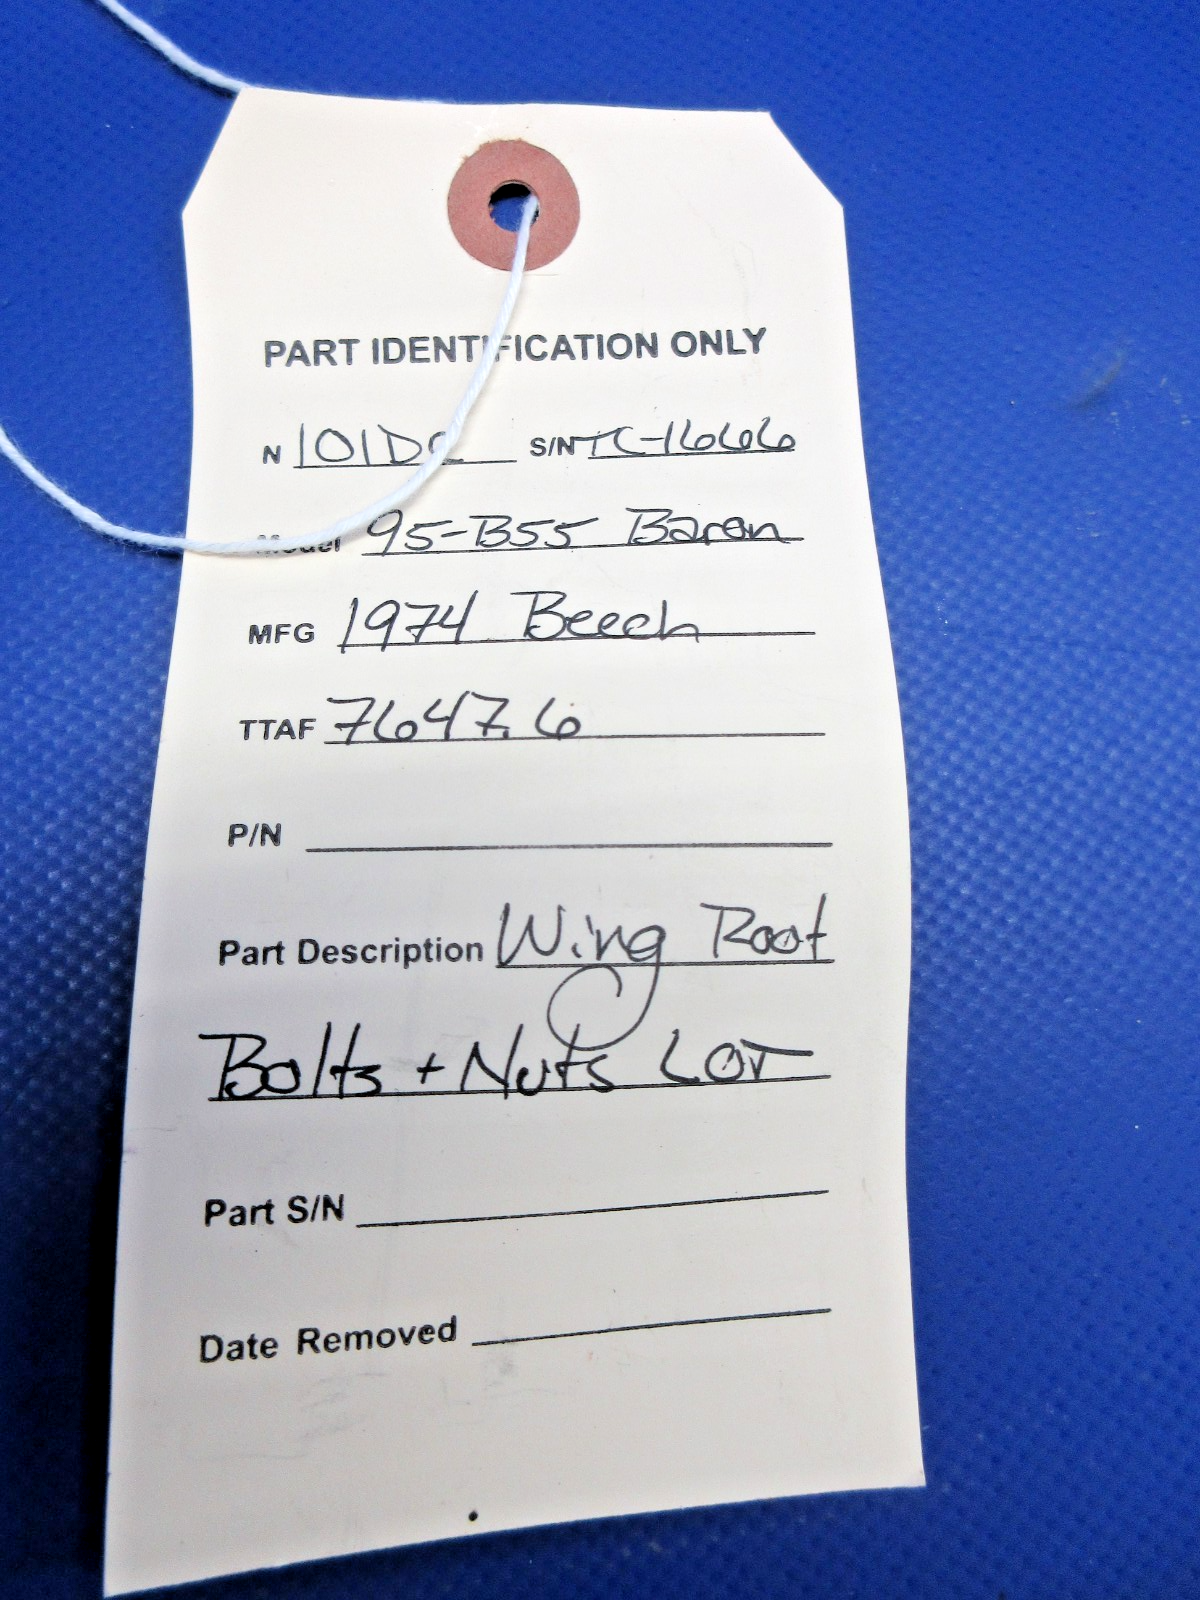 PART IDENTIFICATION ONLY
N 101DC S/N TC-1666
Model 95-B55 Baron
MFG 1974 Beech
TTAF 7647.6
P/N
Part Description Wing Root
Bolts + Nuts LOT
Part S/N
Date Removed